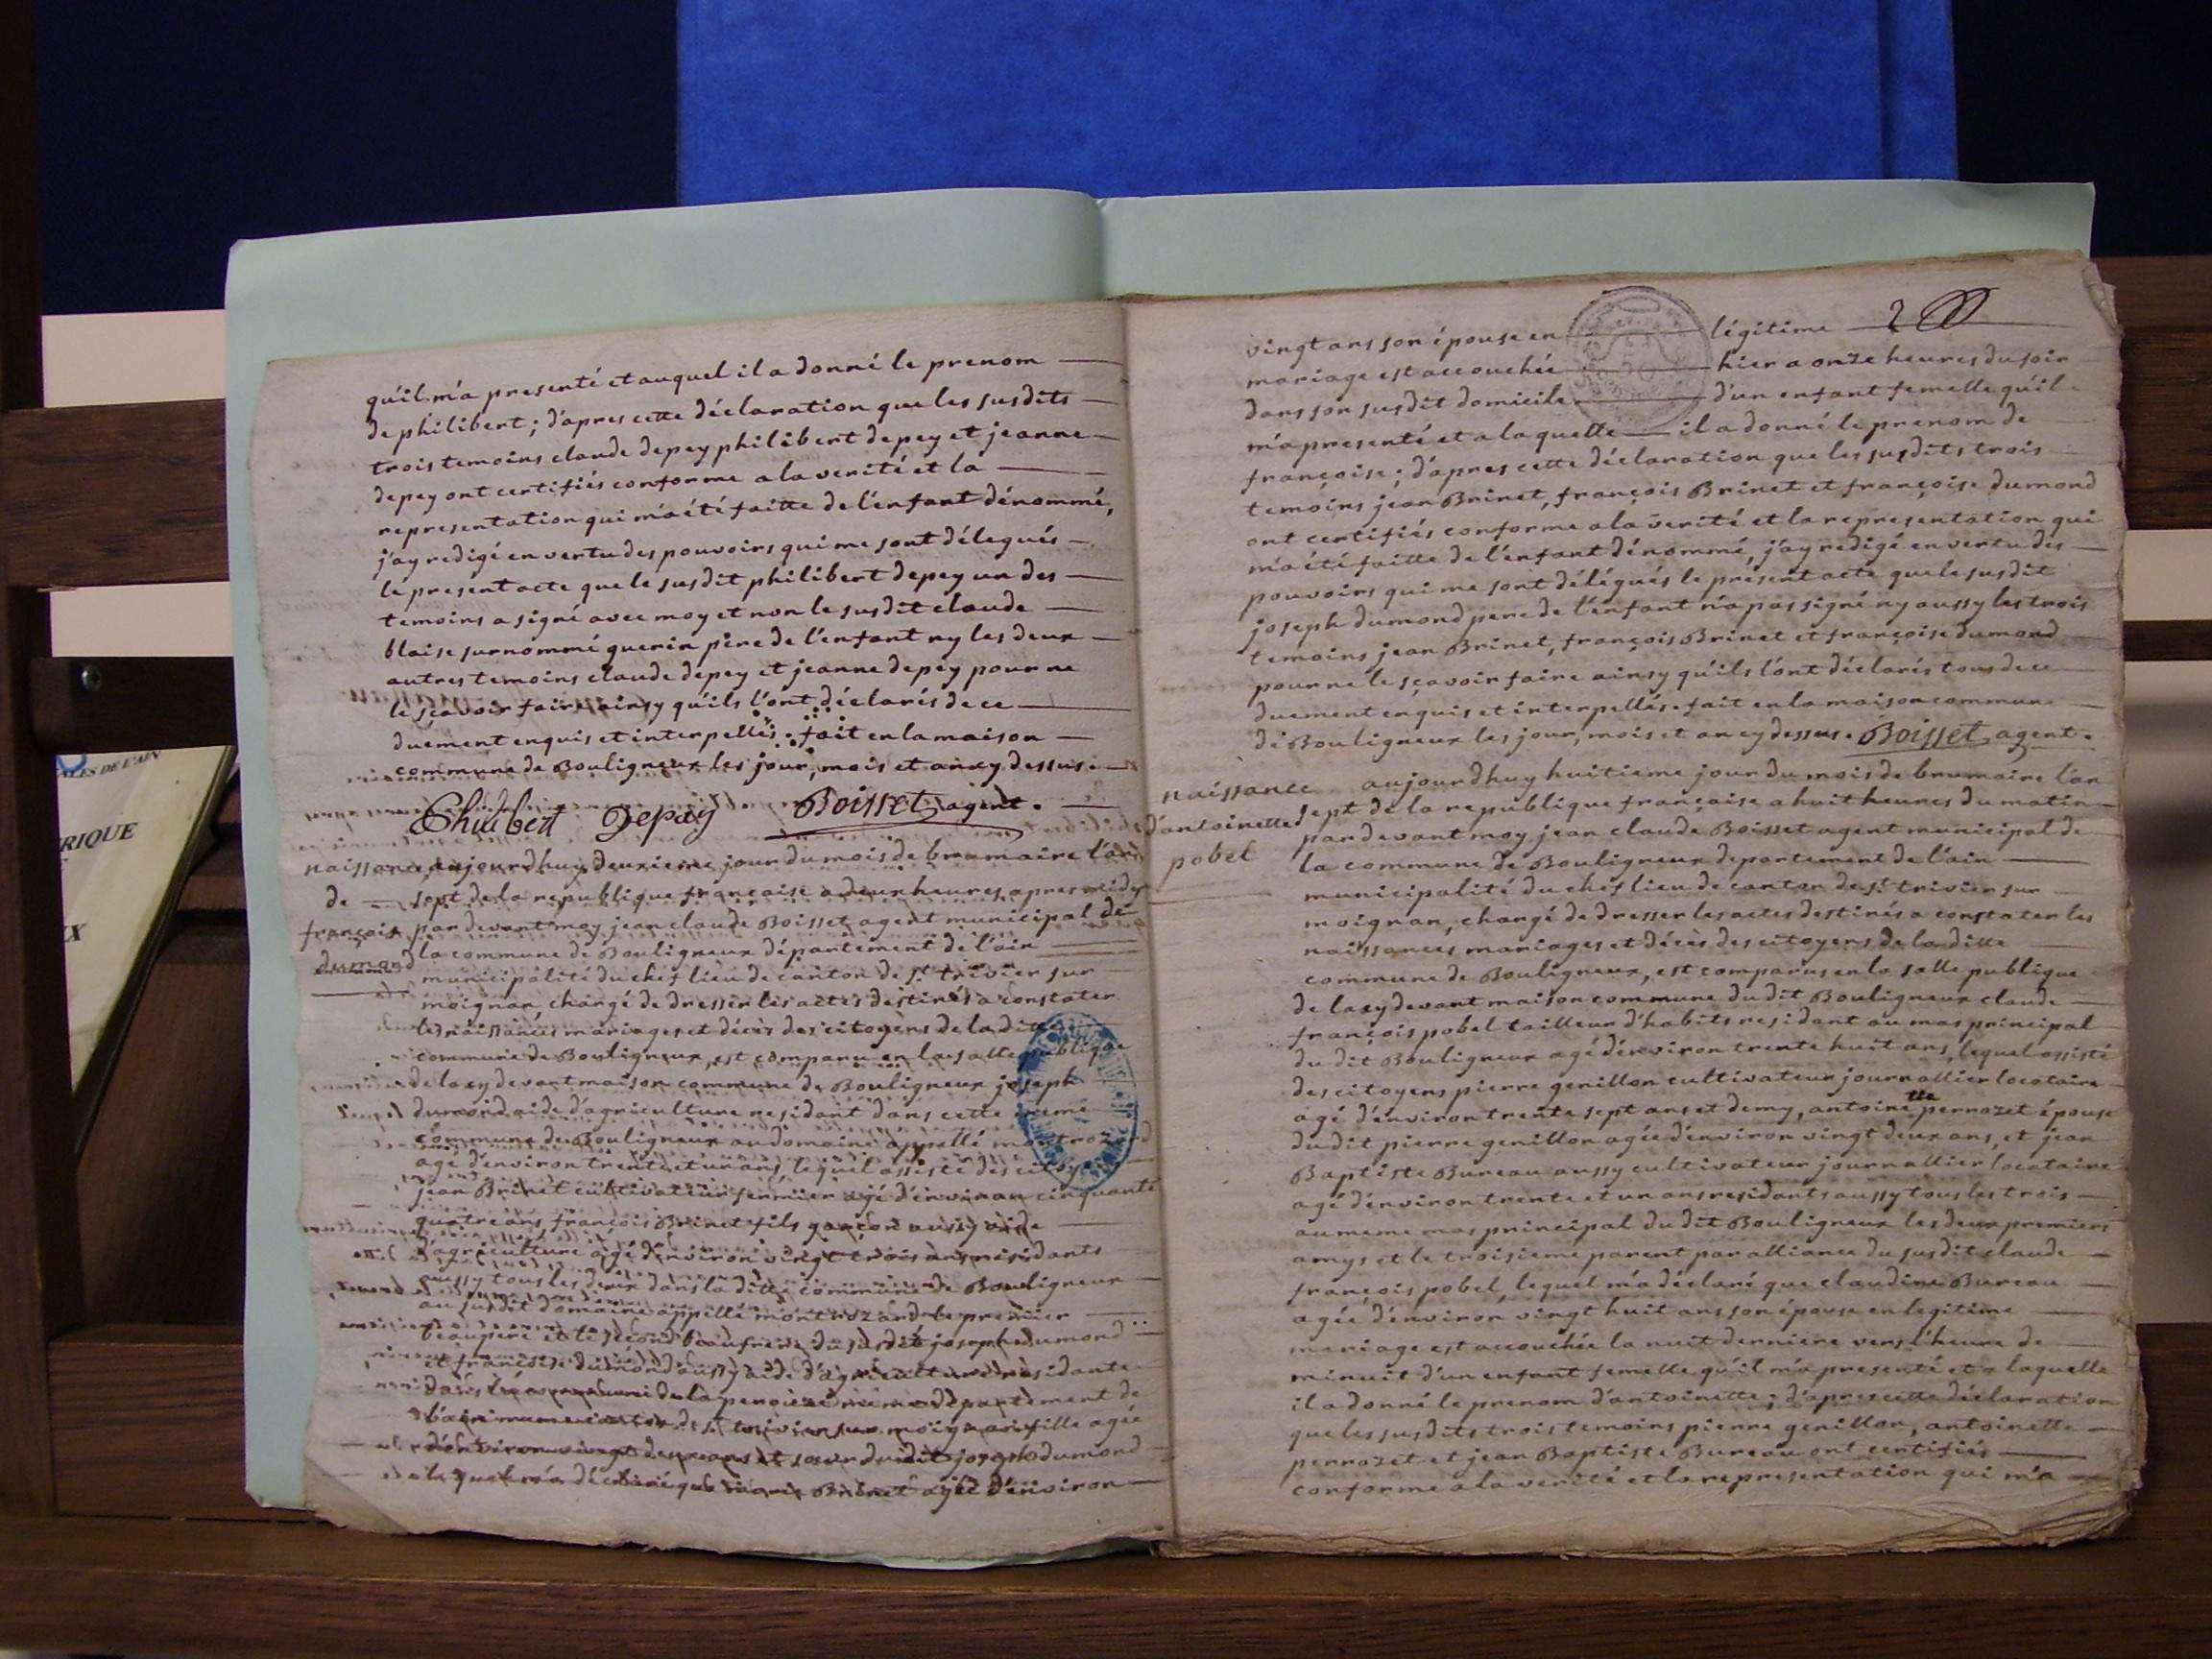 qu'il m'a presenté et auquel il a donné le prenom
de philibert; d'apres cette déclaration que les susdits
trois temoins claude depey philibert depey et jeanne
depey ont certifiés conforme a la verité et la
representation qui m'a été faitte de l'enfant dénommé,
j'ay redigé en vertu des pouvoirs qui me sont délegués
le present acte que le susdit philibert depey un des
temoins a signé avec moy et non le susdit claude
blaise surnommé guerin père de l'enfant ny les deux
autres temoins claude depey et jeanne depey pour ne
le sçavoir faire ainsy qu'ils l'ont déclarés de ce
duement enquis et interpellés. fait en la maison
commune de Bouligneux les jour, mois et an cy dessus.
Philibert Depey Boisset agent.
naissance aujourdhuy deuxieme jour du mois de brumaire l'an
de sept de la republique française a deux heures apres midy
françois par devant moy jean claude Boisset agent municipal de
dumond la commune de Bouligneux département de l'ain
municipalité du chef lieu de canton de st trivier sur
moignan, chargé de dresser les actes destinés a constater
les naissances mariages et décès des citoyens de la ditte
commune de Bouligneux, est comparu en la salle publique
de la cy devant maison commune de Bouligneux joseph
dumond aide d'agriculture residant dans cette meme
commune de Bouligneux au domaine appellé montrozard
agé d'environ trente et un ans, lequel assisté des citoyens
jean Brinet cultivateur fermier agé d'environ cinquante
quatre ans, françois Brinet fils garçon aussy aide
d'agriculture agé d'environ vingt trois ans residants
aussy tous les deux dans la ditte commune de Bouligneux
au susdit domaine appellé montrozard le premier
beaupere et le second beaufrere du susdit joseph dumond
et françoise dumond aussy aide d'agriculture residante
dans la commune de la peroüze meme departement de
l'ain meme canton de st trivier sur moignan fille agée
d'environ vingt deux ans et soeur du dit joseph dumond
lequel m'a déclaré que marie Brinet agée d'environ
2
vingt ans son épouse en légitime
mariage est accouchée hier a onze heures du soir
dans son susdit domicile d'un enfant femelle qu'il
m'a presenté et a laquelle il a donné le prenom de
françoise; d'apres cette déclaration que les susdits trois
temoins jean Brinet, françois Brinet et françoise dumond
ont certifiés conforme a la verité et la representation qui
m'a été faitte de l'enfant dénommé, j'ay redigé en vertu des
pouvoirs qui me sont délégués le présent acte que le susdit
joseph dumond pere de l'enfant n'a pas signé ny aussy les trois
temoins jean Brinet, françois Brinet et françoise dumond
pour ne le sçavoir faire ainsy qu'ils l'ont déclarés tous de ce
duement enquis et interpellés. fait en la maison commune
de Bouligneux les jour, mois et an cy dessus. Boisset agent.
naissance aujourdhuy huitieme jour du mois de brumaire l'an
d'antoinette sept de la republique française a huit heures du matin
pobel par devant moy jean claude Boisset agent municipal de
la commune de Bouligneux departement de l'ain
municipalité du chef lieu de canton de st trivier sur
moignan, chargé de dresser les actes destinés a constater les
naissances mariages et décès des citoyens de la ditte
commune de Bouligneux, est comparus en la salle publique
de la cy devant maison commune du dit Bouligneux claude
françois pobel tailleur d'habits residant au mas principal
du dit Bouligneux agé d'environ trente huit ans, lequel assisté
des citoyens pierre genillon cultivateur journallier locataire
agé d'environ trente sept ans et demy, antoinette perrozet épouse
du dit pierre genillon agée d'environ vingt deux ans, et jean
Baptiste Bureau aussy cultivateur journallier locataire
agé d'environ trente et un ans residants aussy tous les trois
au meme mas principal du dit Bouligneux les deux premiers
amys et le troisieme parent par alliance du susdit claude
françois pobel, lequel m'a déclaré que claudine Bureau
agée d'environ vingt huit ans son épouse en legitime
mariage est accouchée la nuit derniere vers l'heure de
minuit d'un enfant femelle qu'il m'a presenté et a laquelle
il a donné le prenom d'antoinette; d'apres cette déclaration
que les susdits trois temoins pierre genillon, antoinette
perrozet et jean Baptiste Bureau ont certifiés
conforme a la verité et la representation qui m'a
RIQUE